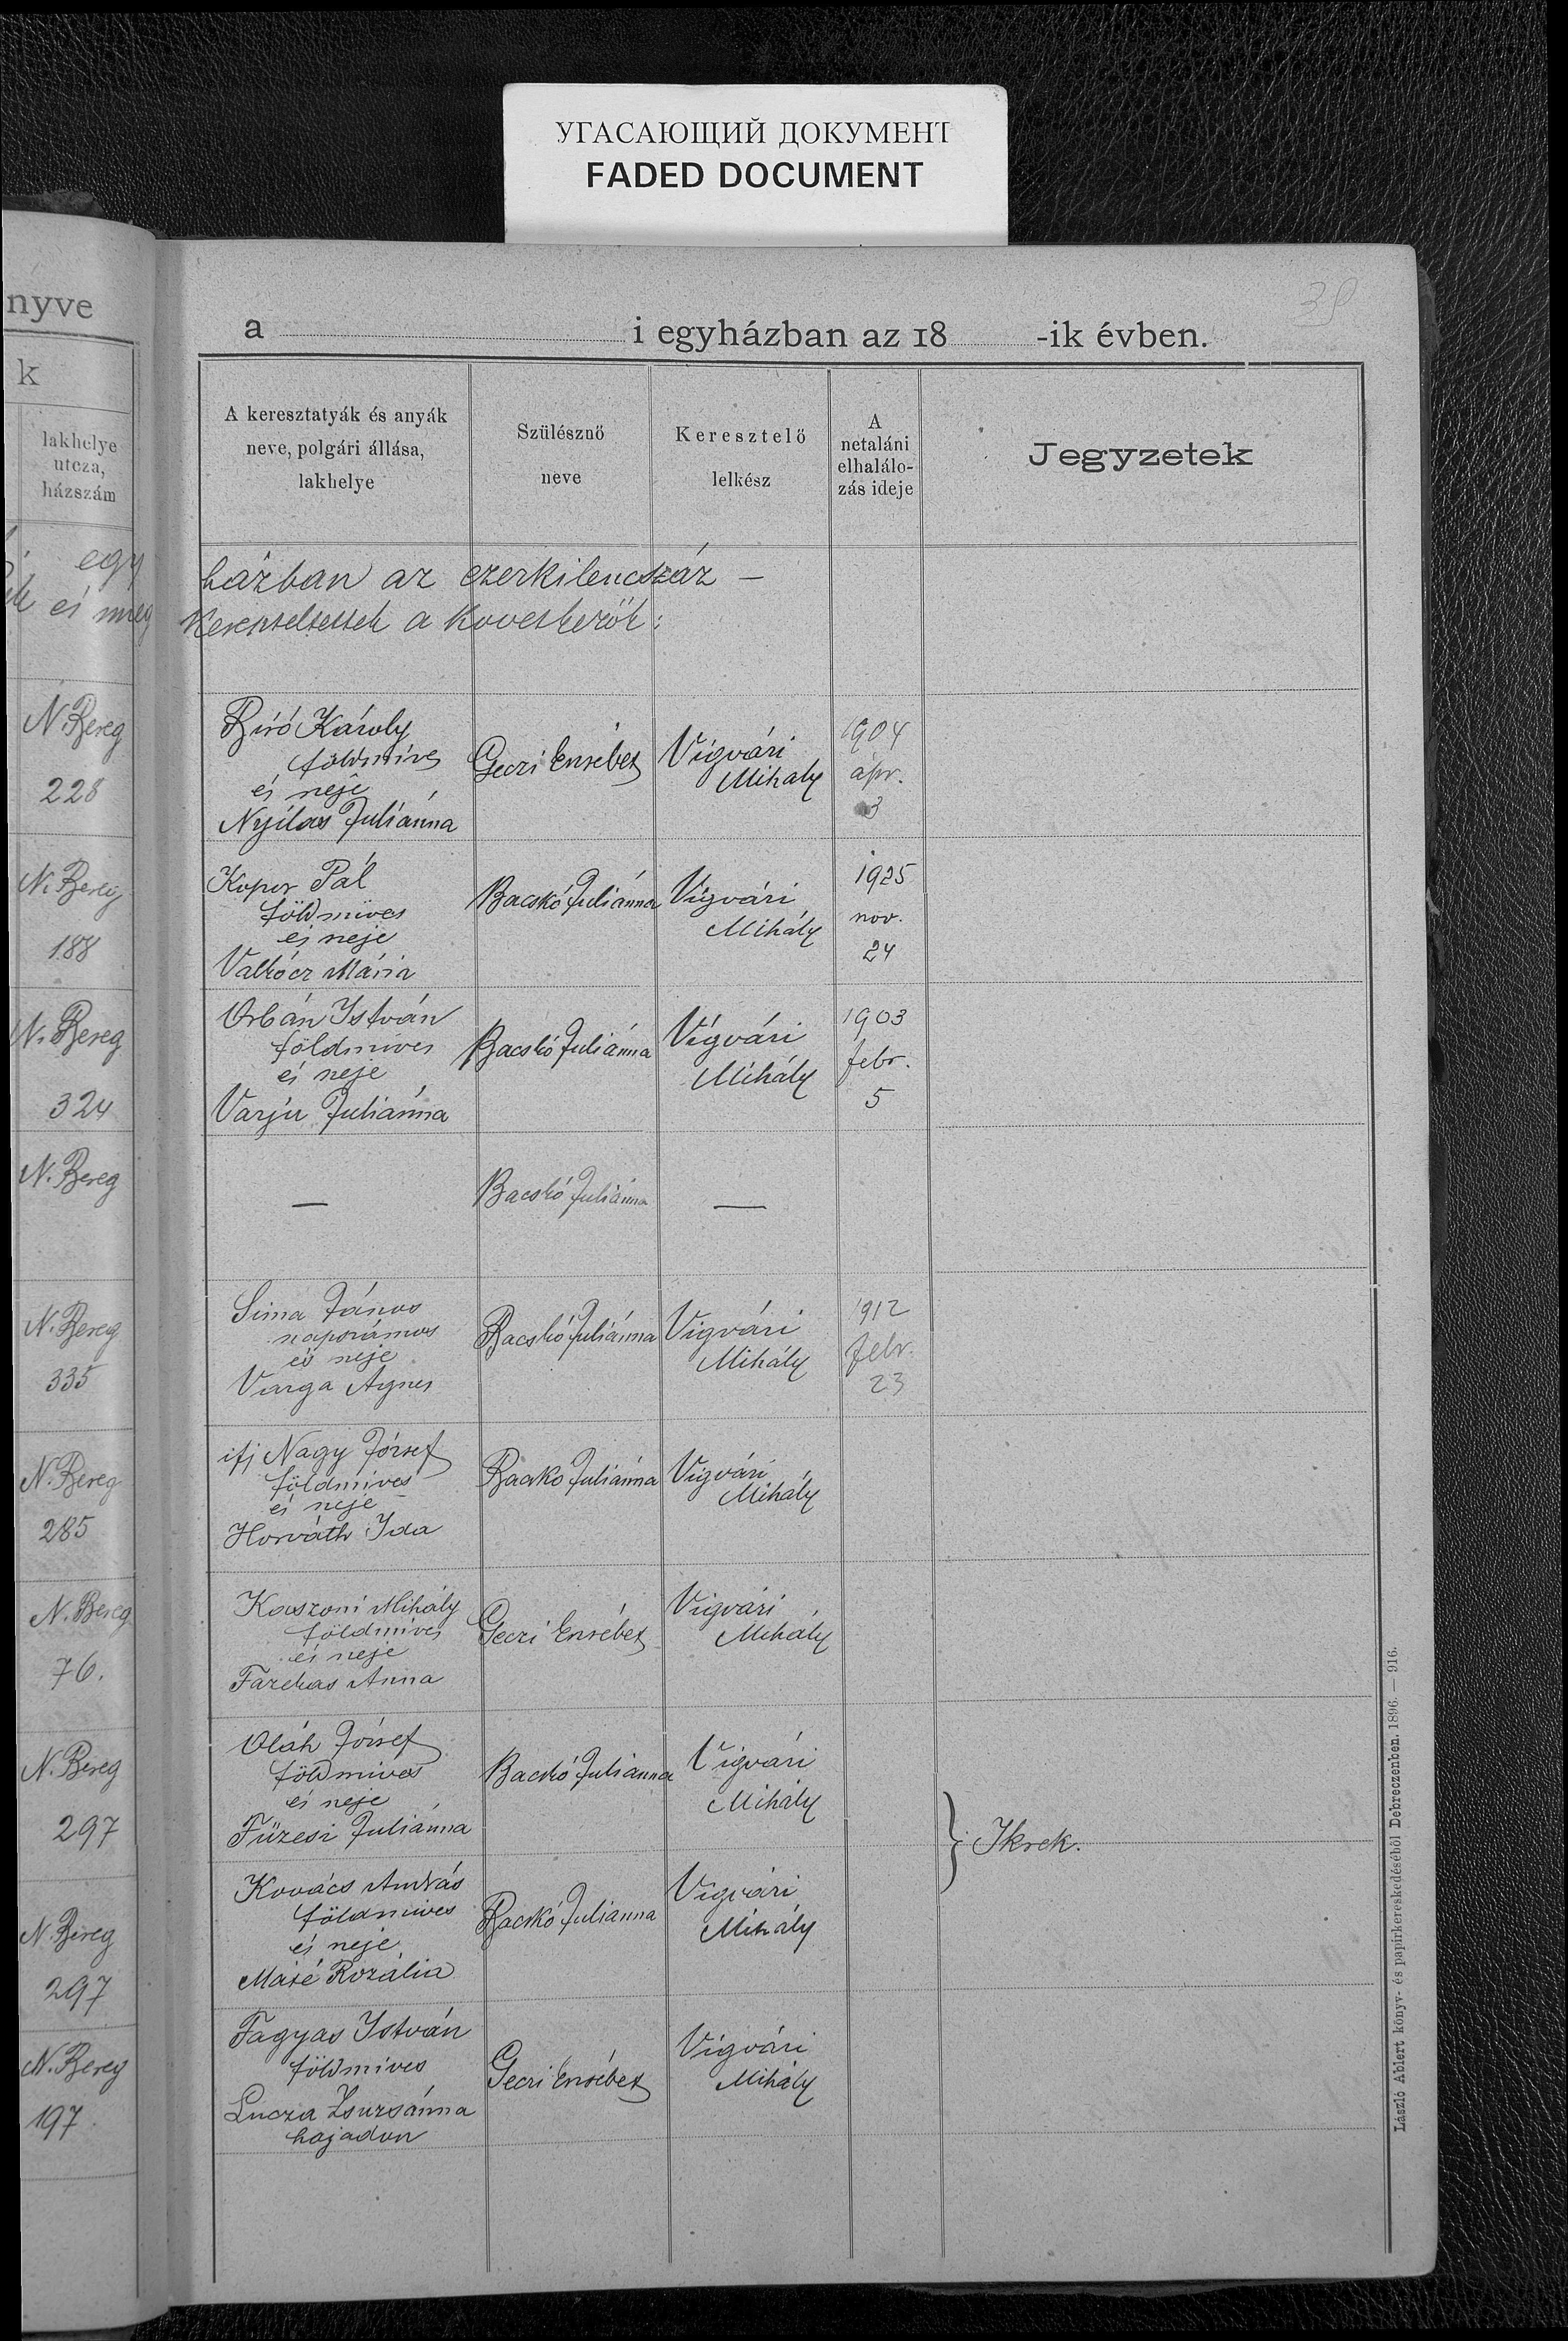 УГАСАЮЩИЙ ДОКУМЕНТ
FADED DOCUMENT
nyve
k
lakhelye
utcza,
házszám
egy
és meg
N. Bereg
228
N. Bereg
188
N. Bereg
324
N. Bereg
N. Bereg
335
N. Bereg
285
N. Bereg
76.
N. Bereg
297
N. Bereg
297
N. Bereg
197.
39
a i egyházban az 18 -ik évben.
A keresztatyák és anyák
neve, polgári állása,
lakhelye
Szülésznő
neve
Keresztelő
lelkész
A
netaláni
elhalálo-
zás ideje
Jegyzetek
házban az ezerkilencszáz —
kereszteltettek a következők:
Biró Károly
földmives
és neje
Nyilas Juliánna
Geczi Ersébet
Vigvári
Mihály
1904
ápr.
3
Kopor Pál
földmíves
és neje
Valkócz Mária
Bacskó Juliánna
Vígvári
Mihály
1925
nov.
24
Orbán István
földmíves
és neje
Varju Juliánna
Bacskó Juliánna
Vígvári
Mihály
1903
febr.
5
—
Bacskó Juliánna
—
Sima János
napszámos
és neje
Varga Ágnes
Bacskó Juliánna
Vigvári
Mihály
1912
febr.
23
ifj Nagy József
földmíves
és neje
Horváth Ida
Bacskó Juliánna
Vigvári
Mihály
Kaszoni Mihály
földmíves
és neje
Fazekas Anna
Geczi Ersébet
Vigvári
Mihály
Oláh József
földmives
és neje
Füzesi Juliánna
Bacskó Juliánna
Vigvári
Mihály
} Ikrek.
Kovács András
földmives
és neje
Máté Rozália
Bacskó Julianna
Vigvári
Mihály
Fagyas István
földmíves
Lucza Zsuzsánna
hajadon
Geczi Ersébet
Vígvári
Mihály
László Ablert könyv- és papirkereskedéséből Debreczenben. 1896. — 916.